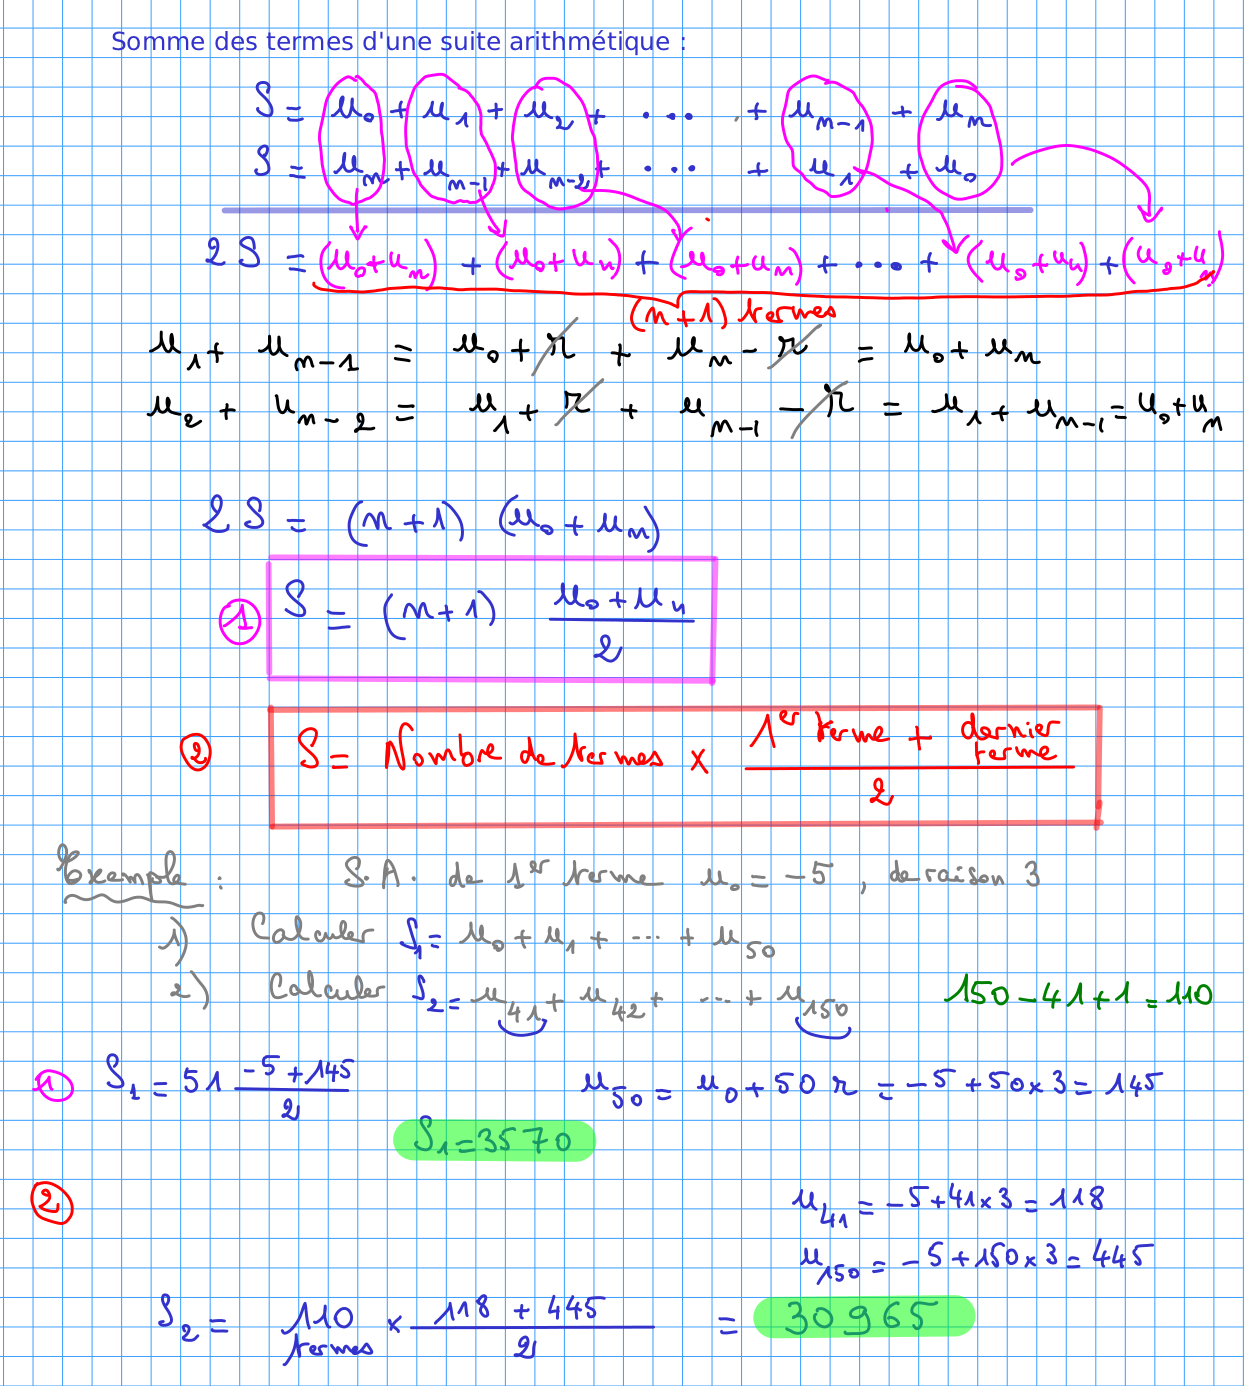 Somme des termes d'une suite arithmétique :
S = u₀ + u₁ + u₂ + ... + uₙ₋₁ + uₙ
S = uₙ + uₙ₋₁ + uₙ₋₂ + ... + u₁ + u₀
2S = (u₀+uₙ) + (u₀+uₙ) + (u₀+uₙ) + ... + (u₀+uₙ) + (u₀+uₙ)
(n+1) termes
u₁ + uₙ₋₁ = u₀ + r + uₙ - r = u₀ + uₙ
u₂ + uₙ₋₂ = u₁ + r + uₙ₋₁ - r = u₁ + uₙ₋₁ = u₀ + uₙ
2S = (n+1) (u₀ + uₙ)
① S = (n+1) (u₀ + uₙ)/2
② S = Nombre de termes × (1er terme + dernier terme)/2
Exemple : S.A. de 1er terme u₀ = -5, de raison 3
1) Calculer S₁ = u₀ + u₁ + ... + u₅₀
2) Calculer S₂ = u₄₁ + u₄₂ + ... + u₁₅₀ 150-41+1 = 110
① S₁ = 51 (-5+145)/2 u₅₀ = u₀ + 50r = -5 + 50×3 = 145
S₁ = 3570
② u₄₁ = -5+41×3 = 118
u₁₅₀ = -5+150×3 = 445
S₂ = 110 termes × (118 + 445)/2 = 30965